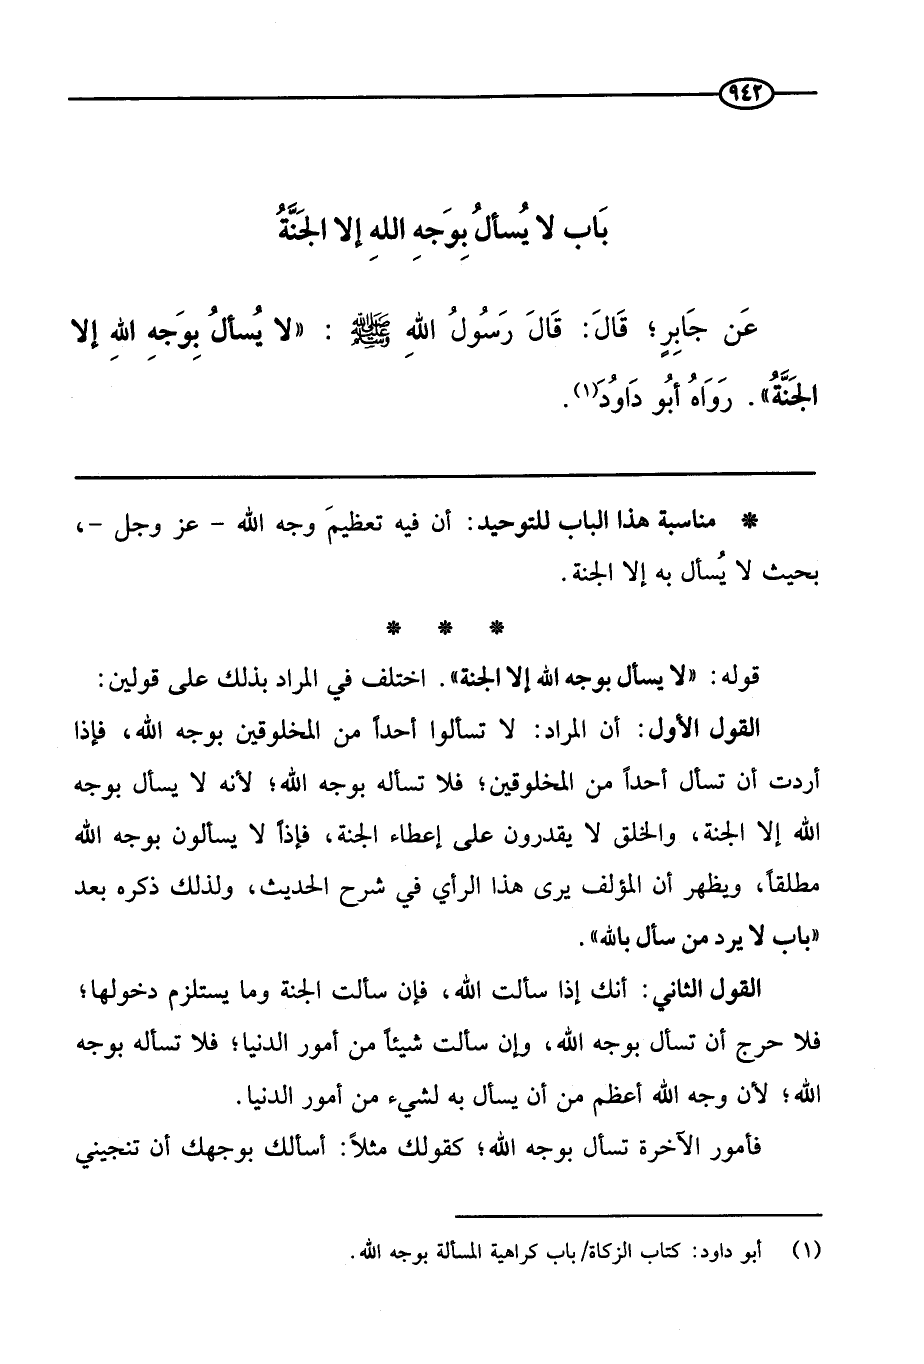 ٩٤٢
بَاب لا يُسألُ بِوَجهِ اللهِ إلا الجَنَّةُ
عَن جَابِرٍ؛ قَالَ: قَالَ رَسُولُ اللهِ ﷺ : «لا يُسألُ بِوَجهِ اللهِ إلا
الجَنَّةُ». رَوَاهُ أبُو دَاوُدَ(١).
* مناسبة هذا الباب للتوحيد: أن فيه تعظيمَ وجه الله - عز وجل -،
بحيث لا يُسأل به إلا الجنة.
* * *
قوله: «لا يسأل بوجه الله إلا الجنة». اختلف في المراد بذلك على قولين:
القول الأول: أن المراد: لا تسألوا أحداً من المخلوقين بوجه الله، فإذا
أردت أن تسأل أحداً من المخلوقين؛ فلا تسأله بوجه الله؛ لأنه لا يسأل بوجه
الله إلا الجنة، والخلق لا يقدرون على إعطاء الجنة، فإذاً لا يسألون بوجه الله
مطلقاً، ويظهر أن المؤلف يرى هذا الرأي في شرح الحديث، ولذلك ذكره بعد
«باب لا يرد من سأل بالله».
القول الثاني: أنك إذا سألت الله، فإن سألت الجنة وما يستلزم دخولها؛
فلا حرج أن تسأل بوجه الله، وإن سألت شيئاً من أمور الدنيا؛ فلا تسأله بوجه
الله؛ لأن وجه الله أعظم من أن يسأل به لشيء من أمور الدنيا.
فأمور الآخرة تسأل بوجه الله؛ كقولك مثلاً: أسألك بوجهك أن تنجيني
(١) أبو داود: كتاب الزكاة/ باب كراهية المسألة بوجه الله.